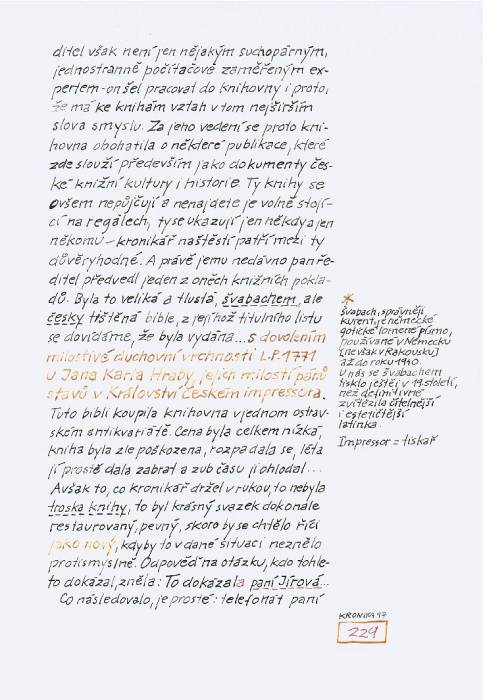 ditel však není jen nějakým suchopárným,
jednostranně počítačově zaměřeným ex-
pertem - on šel pracovat do knihovny i proto,
že má ke knihám vztah v tom nejširším
slova smyslu. Za jeho vedení se proto kni-
hovna obohatila o některé publikace, které
zde slouží především jako dokumenty čes-
ké knižní kultury i historie. Ty knihy se
ovšem nepůjčují a nenajdete je volně stojí-
cí na regálech, ty se ukazují jen někdy a jen
někomu - kronikář naštěstí patří mezi ty
důvěryhodné. A právě jemu nedávno pan ře-
ditel předvedl jeden z oněch knižních pokla-
dů. Byla to veliká a tlustá, švabachem, ale
česky tištěná bible, z jejíhož titulního listu
se dovídáme, že byla vydána... s dovolením
milostivé duchovní vrchnosti L.P. 1771
u Jana Karla Hraby, jejich milostí pánů
stavů v Království Českém impressora.
Tuto bibli koupila knihovna v jednom ostav-
ském antikvariátě. Cena byla celkem nízká,
kniha byla zle poškozena, rozpadala se, léta
jí prostě dala zabrat a zub času ji ohlodal...
Avšak to, co kronikář držel v rukou, to nebyla
troska knihy, to byl krásný svazek dokonale
restaurovaný, pevný, skoro by se chtělo říci
jako nový, kdyby to v dané situaci neznělo
protismyslně. Odpověď na otázku, kdo tohle-
to dokázal, zněla: To dokázala paní Jírová...
Co následovalo, je prosté: telefonát paní
*
Švabach, správněji
kurent, je německé
gotické lomené písmo,
používané v Německu
[ne však v Rakousku]
až do roku 1940.
U nás se švabachem
tisklo ještě i v 19. století,
než definitivně
zvítězila čitelnější
i estetičtější
latinka.
Impressor = tiskař
KRONIKA 97
229